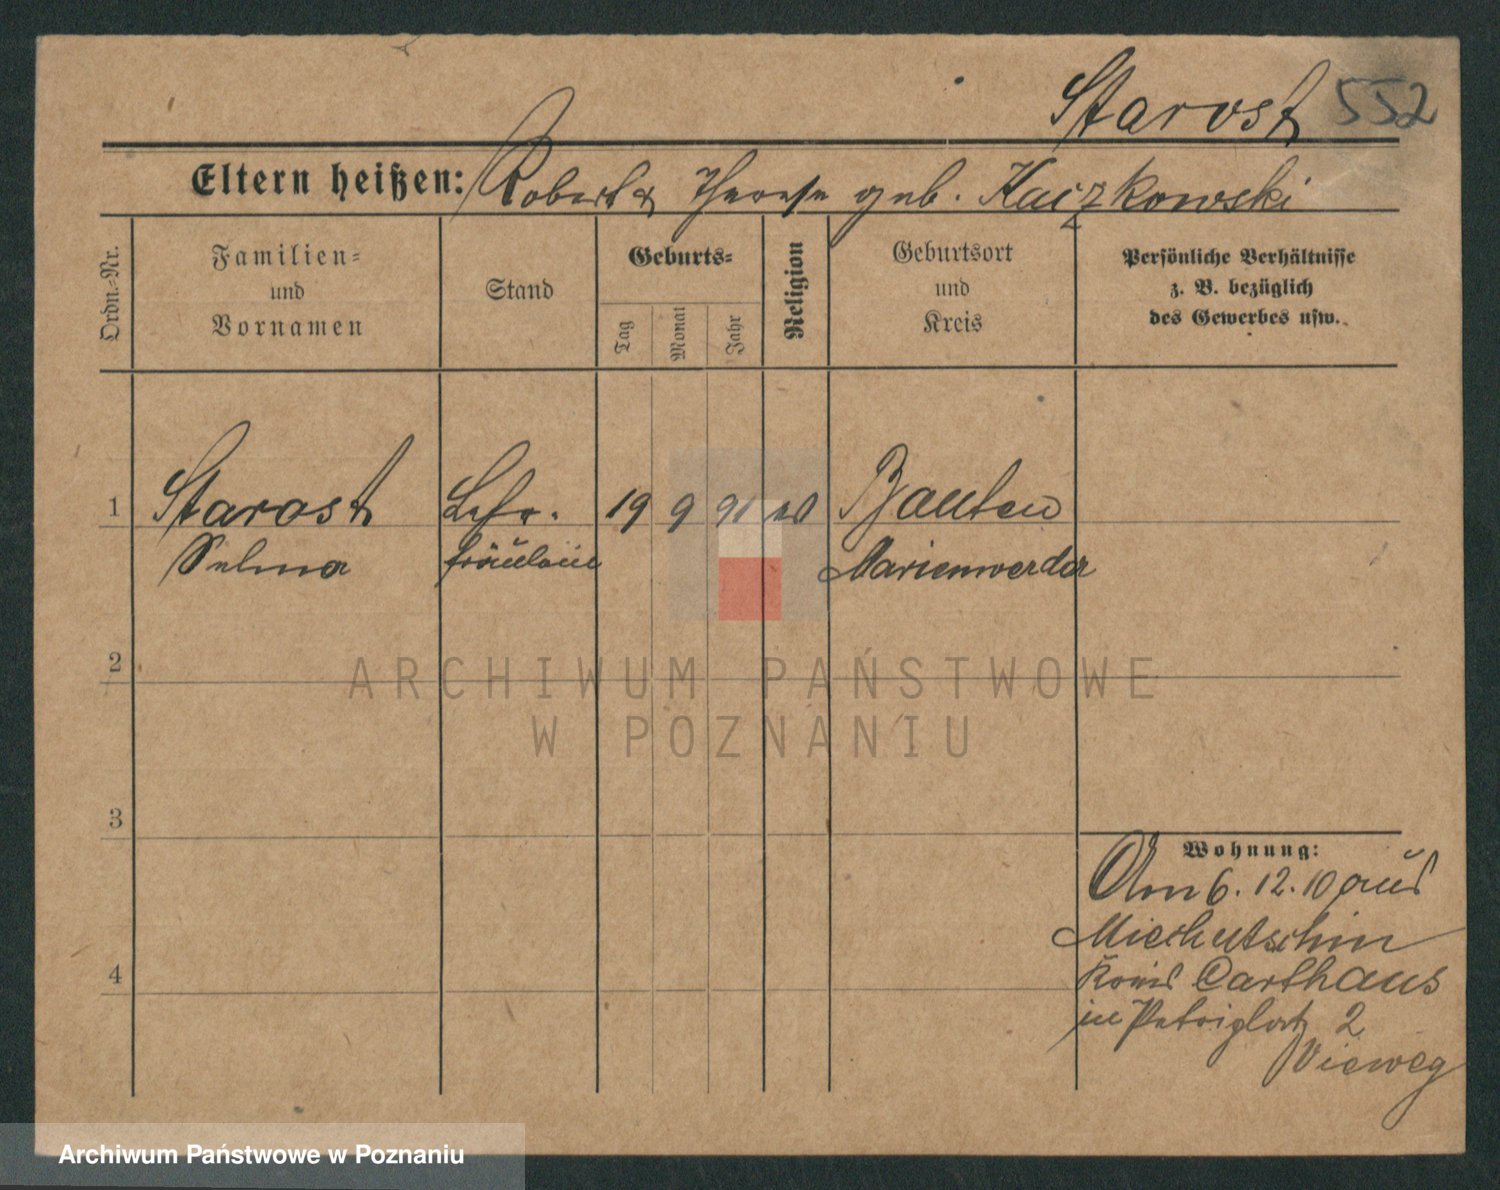 Starost 552
Eltern heißen: Robert & Therese geb. Kaczkowski
Ordn.-Nr.
Familien-
und
Vornamen
Stand
Geburts-
Tag
Monat
Jahr
Religion
Geburtsort
und
Kreis
Persönliche Verhältnisse
z. B. bezüglich
des Gewerbes usw.
1 Starost Lehr- 19 9 91 ev Bauten
Selma fräulein Marienwerder
2
3
4
Wohnung:
Am 6. 12. 10 aus
Miechutschin
Kreis Carthaus
in Petriplatz 2
Vieweg
ARCHIWUM PAŃSTWOWE
W POZNANIU
Archiwum Państwowe w Poznaniu